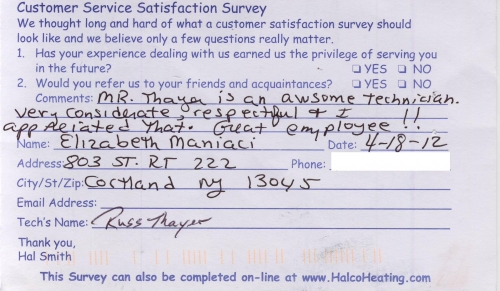 Customer Service Satisfaction Survey
We thought long and hard of what a customer satisfaction survey should
look like and we believe only a few questions really matter.
1. Has your experience dealing with us earned us the privilege of serving you
in the future? ☐ YES ☐ NO
2. Would you refer us to your friends and acquaintances? ☐ YES ☐ NO
Comments: MR. Thayer is an awsome technician.
very considerate, respectful & I
appreiated that. Great employee !!
Name: Elizabeth Maniaci Date: 4-18-12
Address: 803 ST. RT 222 Phone:
City/St/Zip: Cortland NY 13045
Email Address:
Tech's Name: Russ Thayer
Thank you,
Hal Smith
This Survey can also be completed on-line at www.HalcoHeating.com.